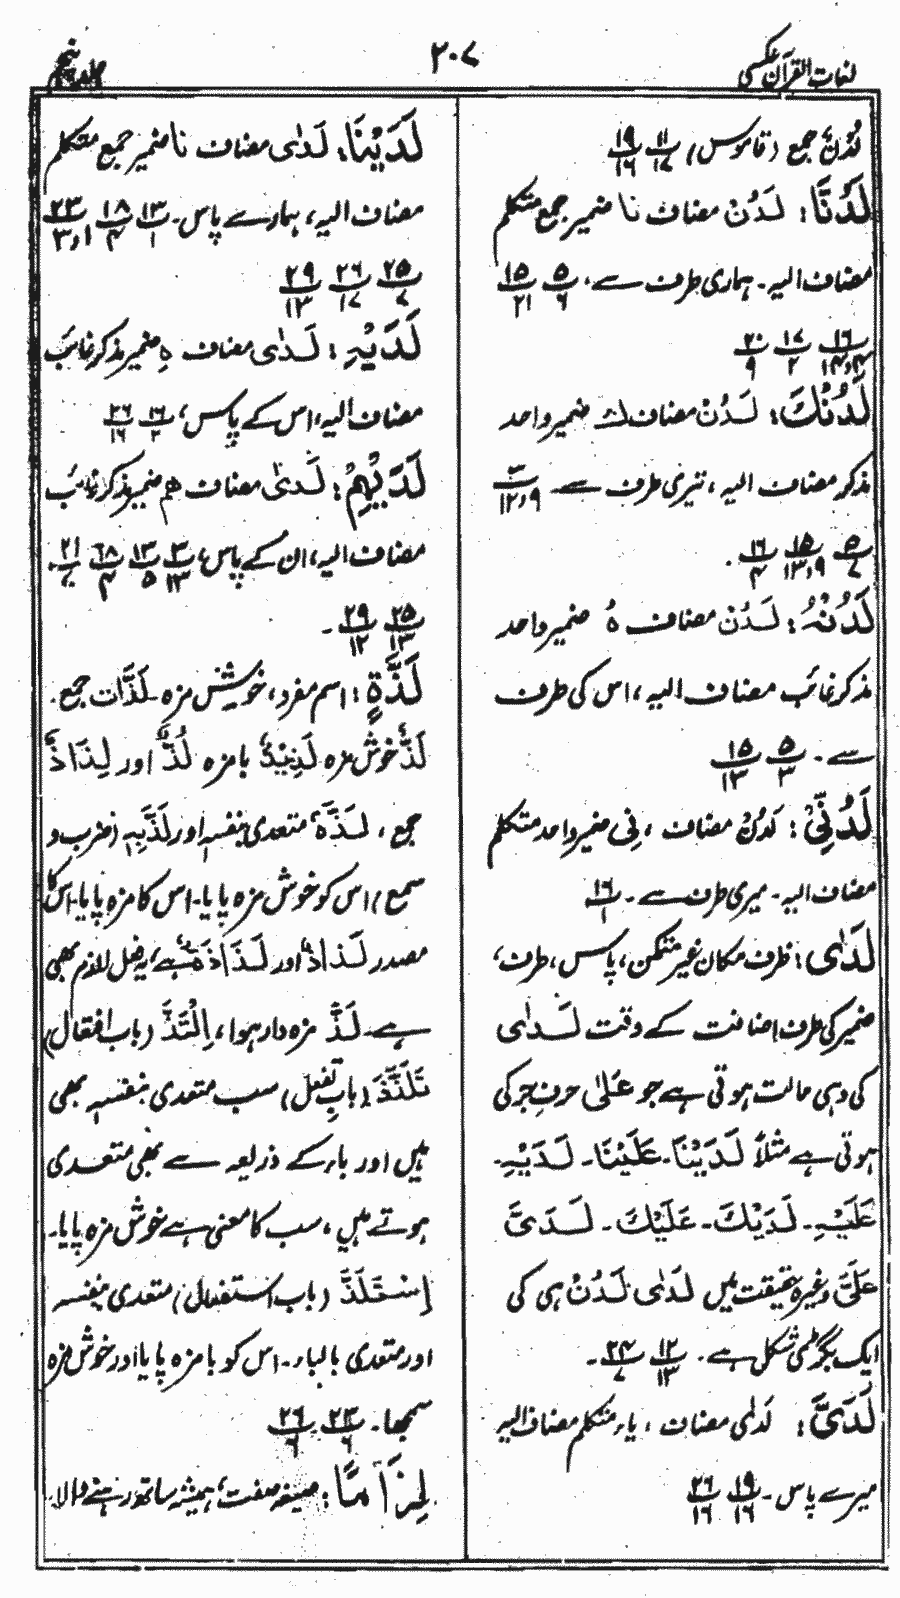 لغات القرآن عکسی
۲۰۷
جلد پنجم
لُدْنٌ جمع (قاموس) ۱۱/۱۷ ۱۹/۱۶
لَدُنَّا: لَدُنْ مضاف نا ضمیر جمع متکلم
مضاف الیہ۔ ہماری طرف سے، ۵/۶ ۱۵/۲۱
۱۶/۱۴،۴ ۱۷/۲ ۲۰/۹
لَدُنْكَ: لَدُنْ مضاف ك ضمیر واحد
مذکر مضاف الیہ، تیری طرف سے ۳/۱۲،۹
۵/۷ ۱۵/۱۳،۹ ۱۶/۴
لَدُنْهُ: لَدُنْ مضاف ہُ ضمیر واحد
مذکر غائب مضاف الیہ، اس کی طرف
سے۔ ۵/۳ ۱۵/۱۳
لَدُنِّیْ: لَدُنْ مضاف، نِی ضمیر واحد متکلم
مضاف الیہ۔ میری طرف سے۔ ۱۶/۱
لَدٰی: ظرف مکان غیر متمکن، پاس، طرف،
ضمیر کی طرف اضافت کے وقت لَدٰی
کی وہی حالت ہوتی ہے جو عَلٰی حرفِ جر کی
ہوتی ہے مثلاً لَدَیْنَا۔ عَلَیْنَا۔ لَدَیْہِ۔
عَلَیْہِ۔ لَدَیْكَ۔ عَلَیْكَ۔ لَدَیَّ
عَلَیَّ وغیرہ حقیقت میں لَدٰی لَدُنْ ہی کی
ایک بگڑی شکل ہے۔ ۱۲/۱۳ ۲۴/۷۔
لَدَیَّ: لَدٰی مضاف، یاء متکلم مضاف الیہ
میرے پاس۔ ۱۹/۱۶ ۲۶/۱۶
لَدَیْنَا: لَدٰی مضاف نا ضمیر جمع متکلم
مضاف الیہ، ہمارے پاس۔ ۱۳/۱ ۱۸/۴ ۲۳/۳،۱
۲۵/۷ ۲۶/۱۷ ۲۹/۱۳
لَدَیْہِ: لَدٰی مضاف ہِ ضمیر مذکر غائب
مضاف الیہ، اس کے پاس، ۱۶/۲ ۲۶/۱۶
لَدَیْہِمْ: لَدٰی مضاف ھم ضمیر مذکر غائب
مضاف الیہ، ان کے پاس، ۳/۱۳ ۱۳/۵ ۱۸/۴ ۲۱/۷،
۲۵/۱۳ ۲۹/۱۲۔
لَذَّةٍ: اسم مفرد، خوشی مزہ۔ لَذَّات جمع۔
لَذٌّ خوش مزہ لَذِیْذٌ بامزہ لُذٌّ اور لِذَاذٌ
جمع، لَذَّہٗ، متعدی بنفسہٖ اور لَذَّ بِہٖ (ضرب و
سمع) اس کو خوش مزہ پایا۔ اس کا مزہ پایا۔ اس کا
مصدر لَذَاذٌ اور لَذَاذَۃٌ ہے، یہ فعل لازم بھی
ہے۔ لَذَّ مزہ دار ہوا، اِلْتَذَّ (باب افتعال)
تَلَذَّذَ (بابِ تفعل) سب متعدی بنفسہٖ بھی
ہیں اور باء کے ذریعہ سے بھی متعدی
ہوتے ہیں، سب کا معنی ہے خوش مزہ پایا۔
اِسْتَلَذَّ (باب استفعال) متعدی بنفسہ
اور متعدی بالباء۔ اس کو بامزہ پایا اور خوش مزہ
سمجھا۔ ۲۳/۶ ۲۶/۶
لِزَامًا: صیغہ صفت، ہمیشہ ساتھ رہنے والا۔